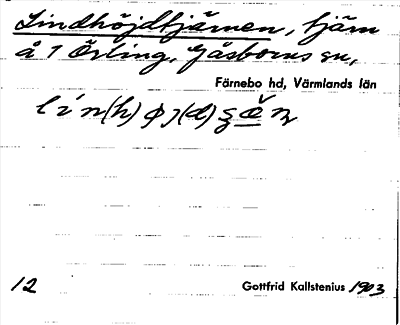 Lindhöjdtjärnen, tjärn
å 1 Örling, Gåsborns sn,
Färnebo hd, Värmlands län
12
Gottfrid Kallstenius 1903